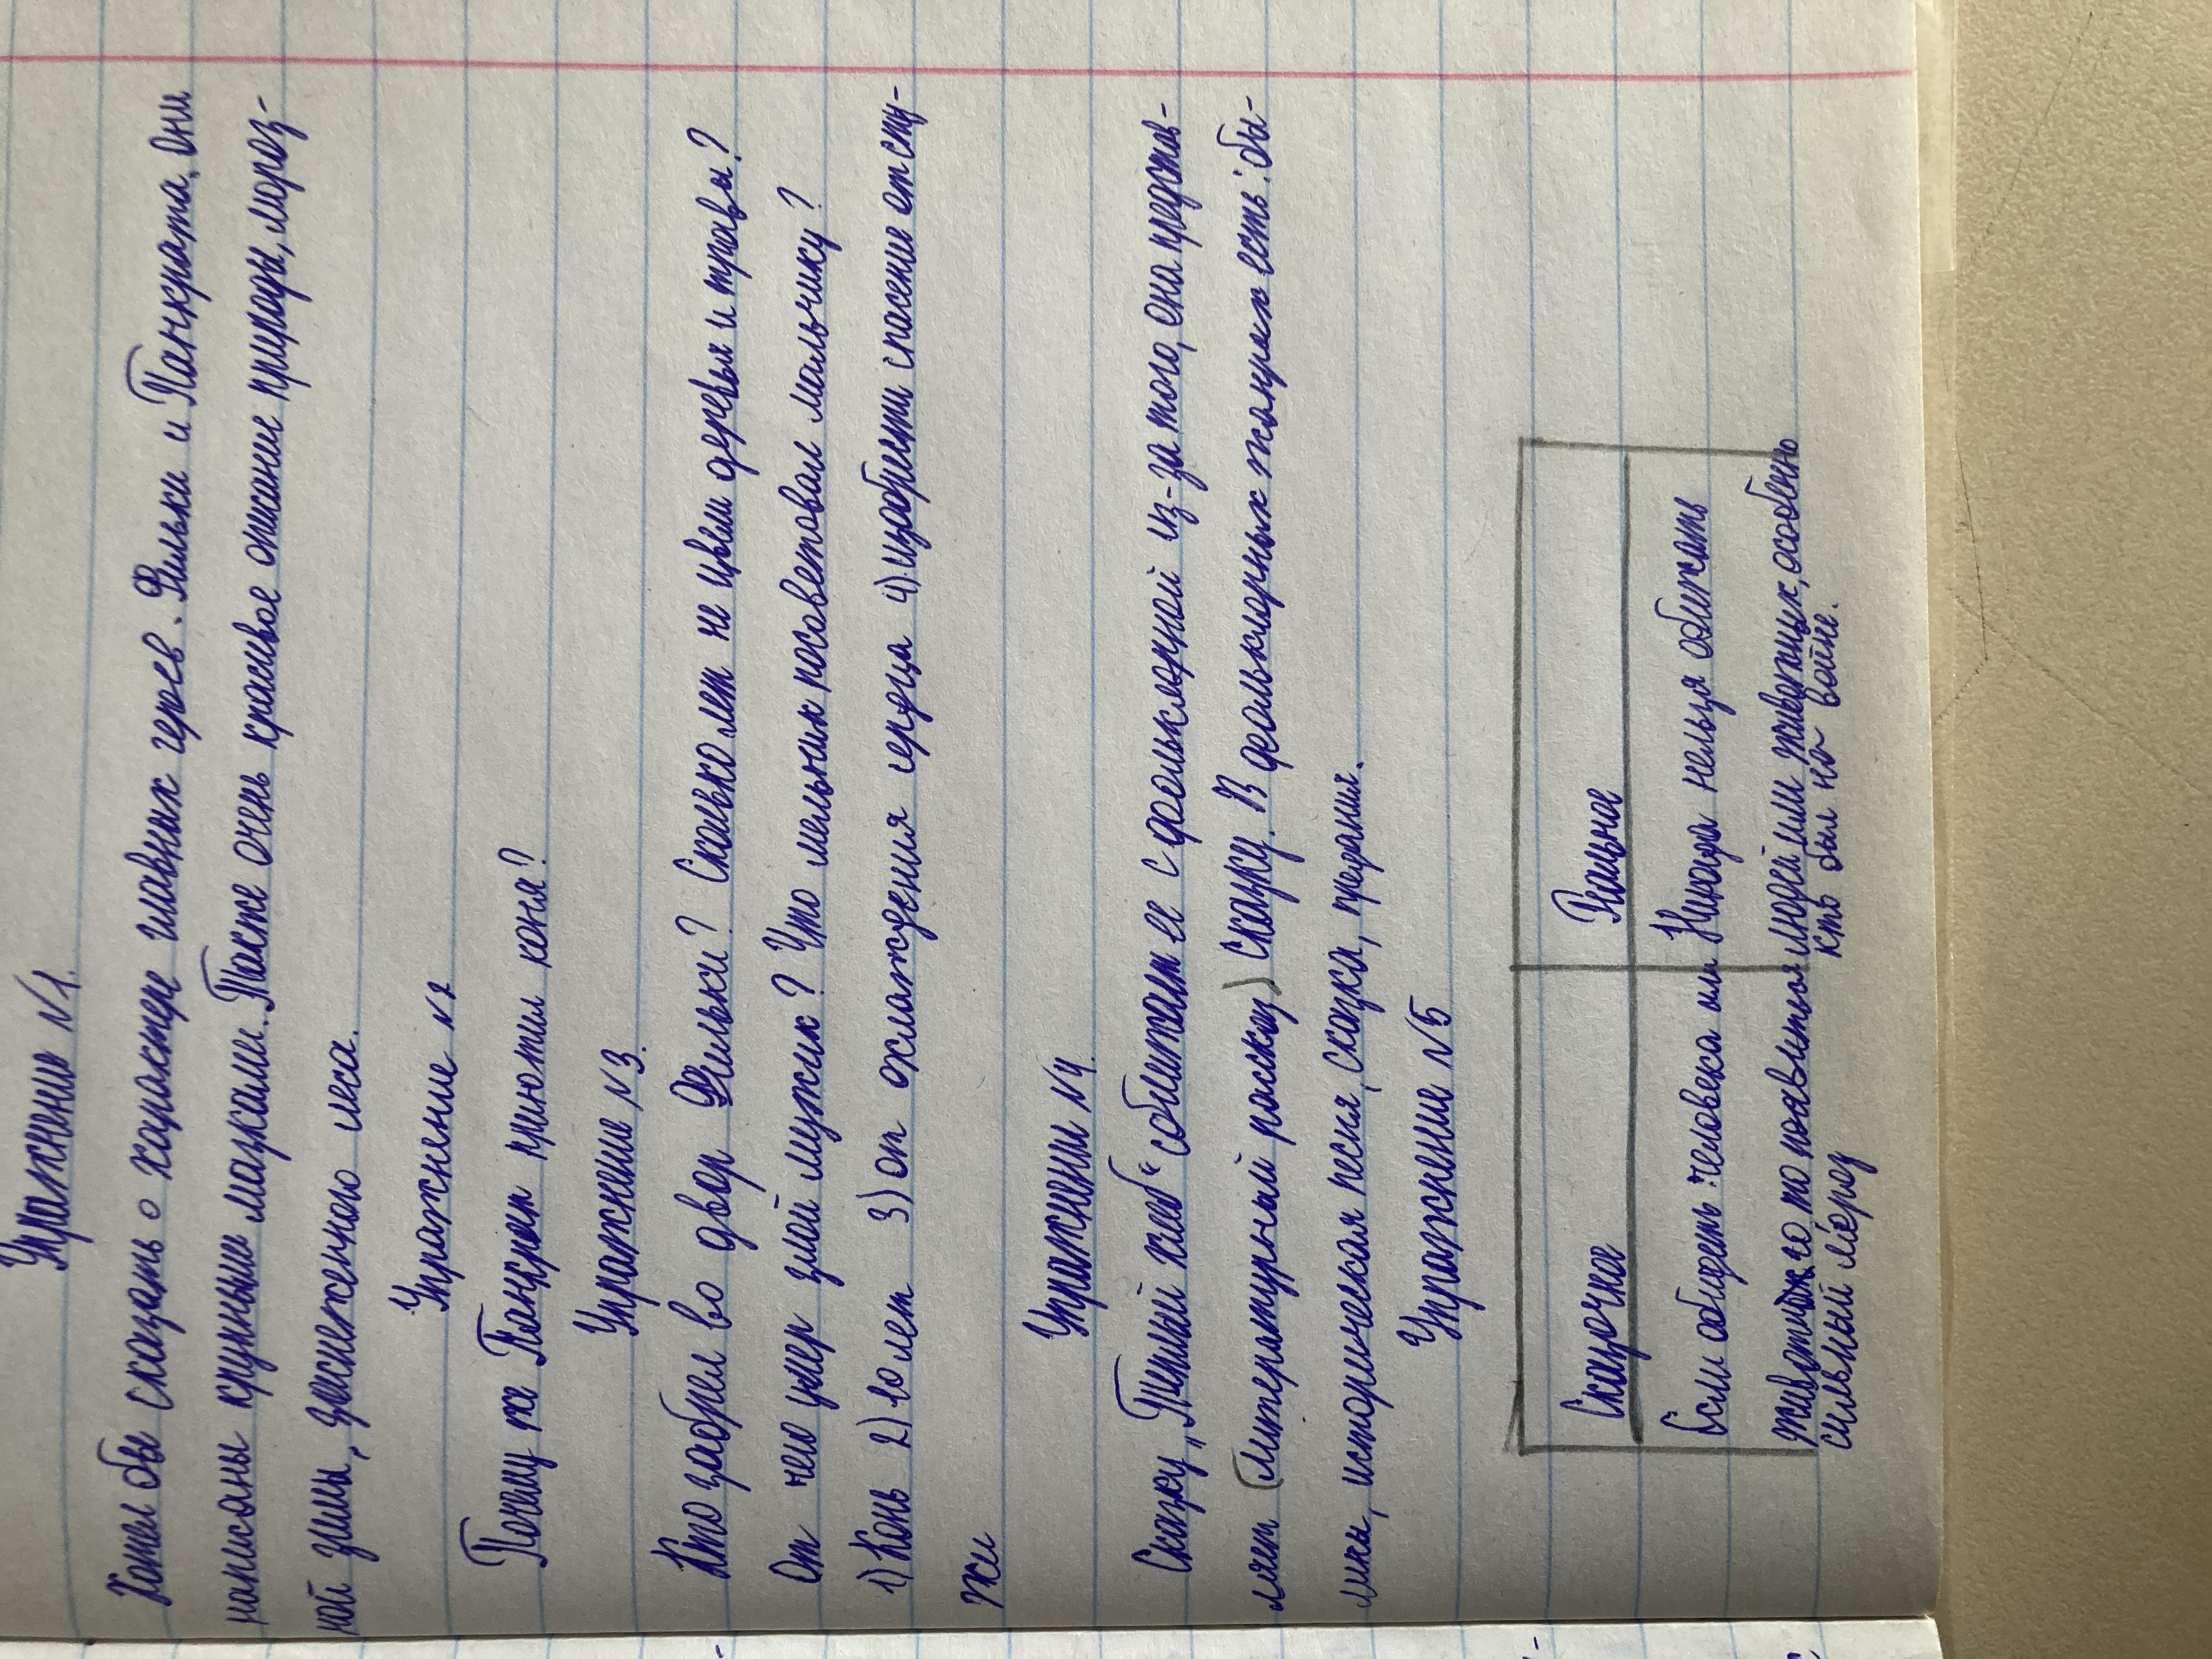 Упражнение №1.
Хотел бы сказать о характере главных героев. Фильки и Панкрата, они
написаны крупными мазками. Также очень красивое описание природы, мороз-
ной зимы, заснеженного леса.
Упражнение №2
Почему же Панкрат приютил коня?
Упражнение №3.
Кто забрел во двор Фильки? Сколько лет не цвели деревья и травы?
От чего умер злой мужик? Что мельник посоветовал мальчику?
1) Конь 2) 10 лет 3) от охлаждения сердца 4) изобрести спасение от сту-
жи
Упражнение №4.
Сказку „Теплый хлеб“ сближает ее с фольклорной из-за того, она представ-
ляет (литературный рассказ) сказку. В фольклорных жанрах есть: бы-
лины, историческая песня, сказка, предания.
Упражнение №5
Сказочное Реальное
Если обидеть человека или Никогда нельзя обижать
животного то появиться людей или животных, особенно
сильный мороз кто был на войне.